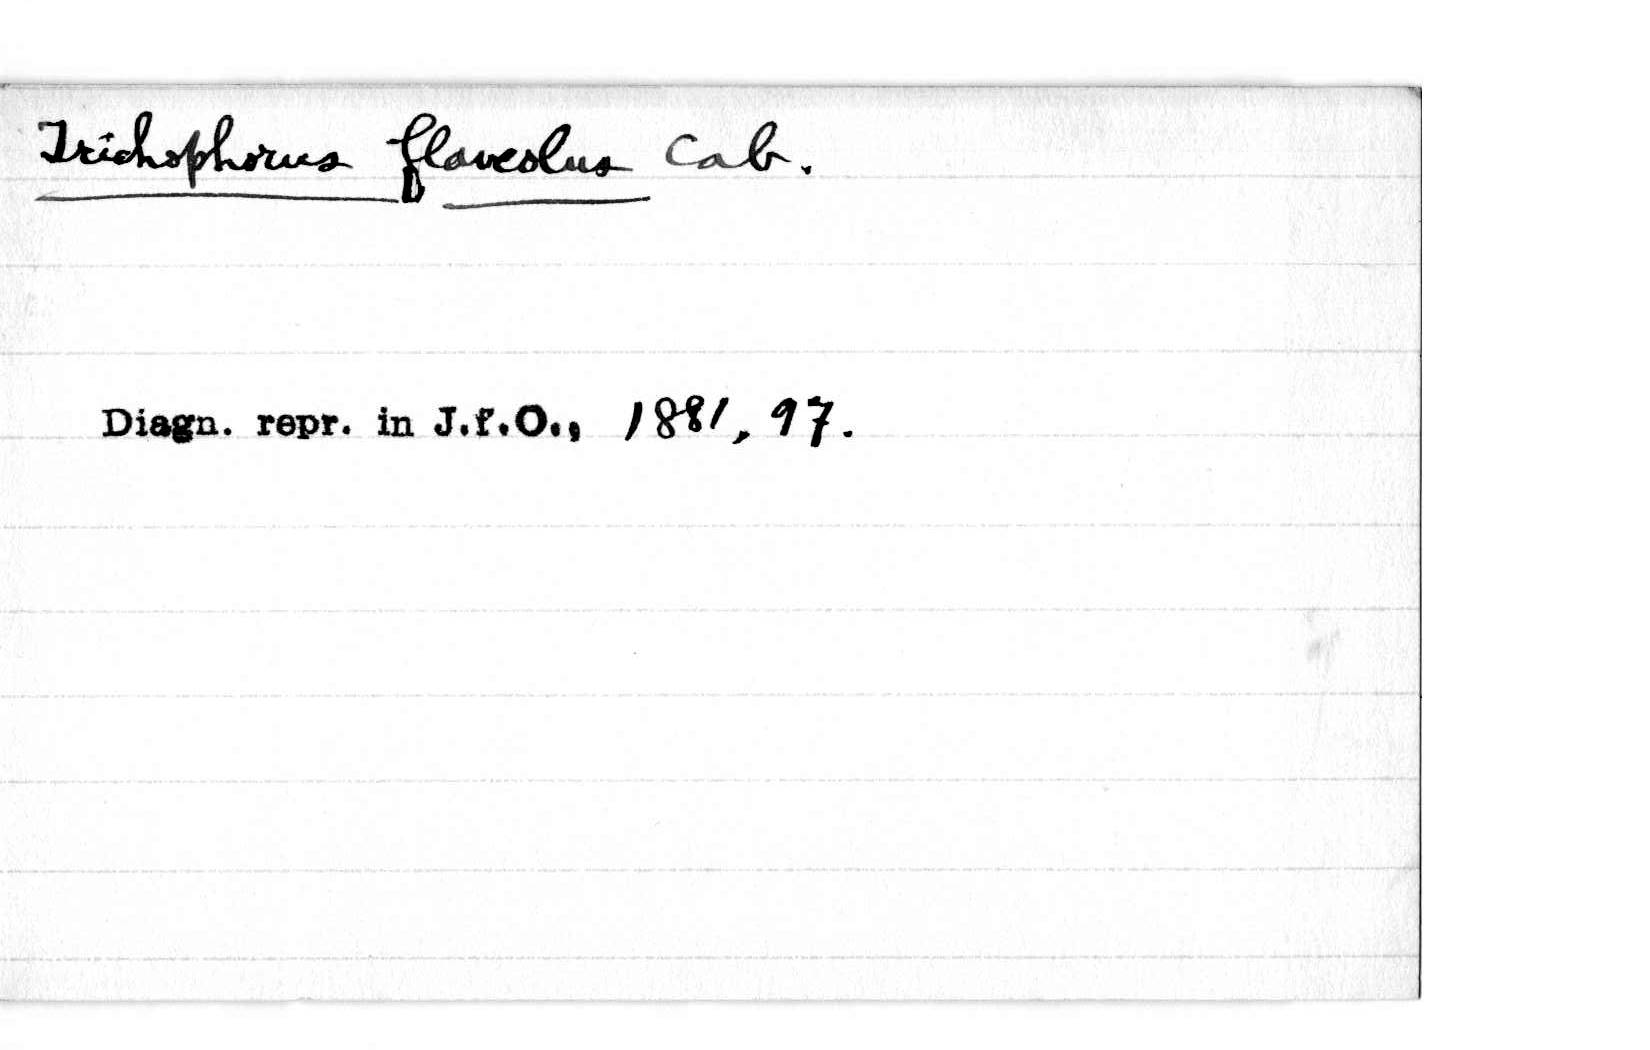 Trichophorus flaveolus Cab.
Diagn. repr. in J.f.O., 1881, 97.